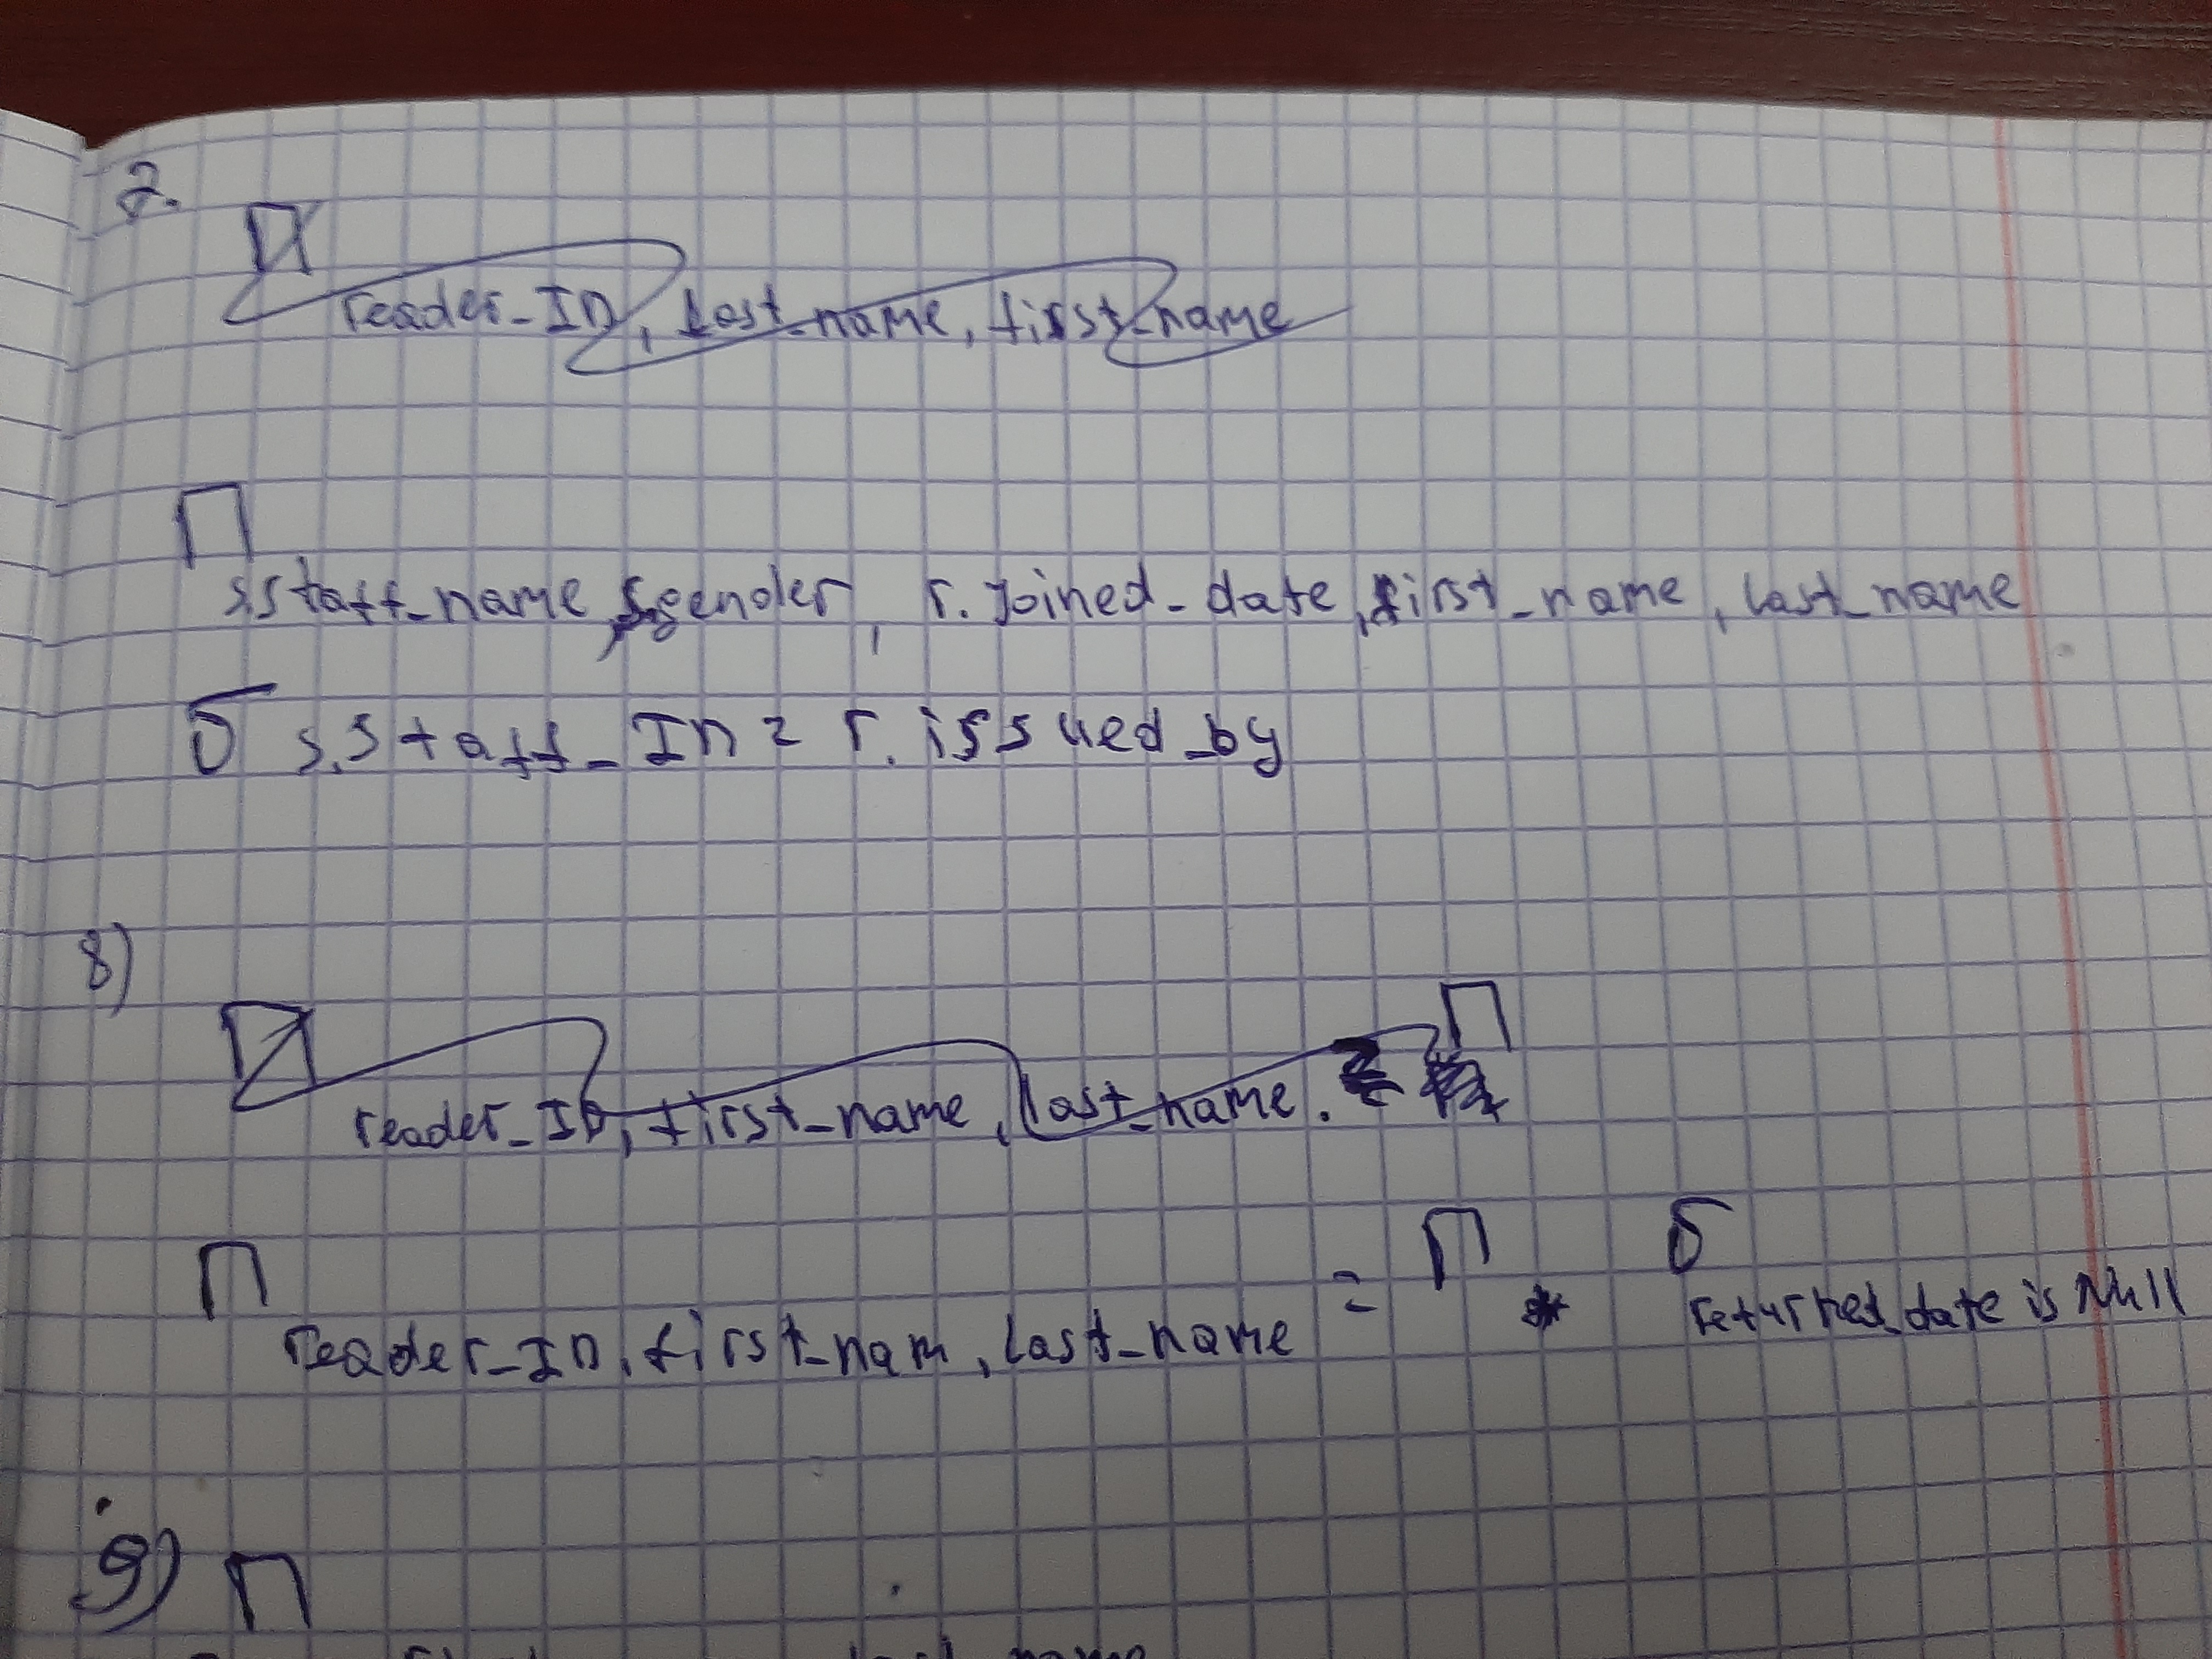 2.
П reader_ID, Last_name, first_name
П s.staff_name, s.gender, r.joined_date, first_name, last_name
б s.staff_ID = r.issued_by
8)
П reader_ID, first_name, last_name. П
П reader_ID, first_nam, last_name - П * б returned_date is Null
9) П